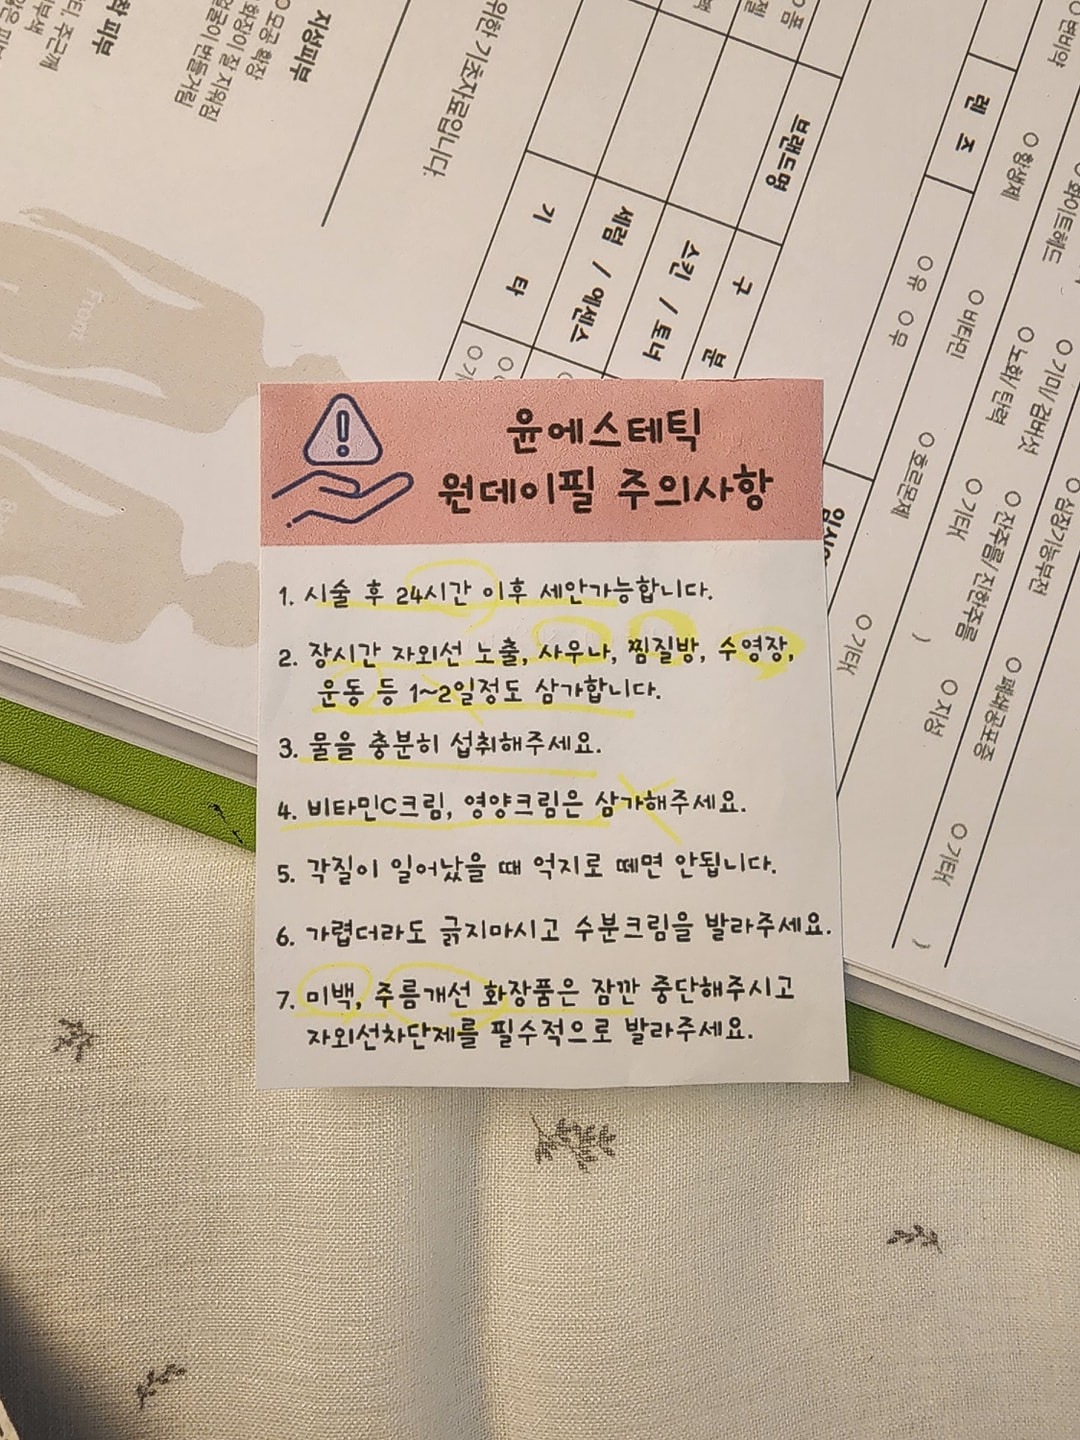 윤에스테틱
원데이필 주의사항
1. 시술 후 24시간 이후 세안가능합니다.
2. 장시간 자외선 노출, 사우나, 찜질방, 수영장,
운동 등 1~2일정도 삼가합니다.
3. 물을 충분히 섭취해주세요.
4. 비타민C크림, 영양크림은 삼가해주세요.
5. 각질이 일어났을 때 억지로 떼면 안됩니다.
6. 가렵더라도 긁지마시고 수분크림을 발라주세요.
7. 미백, 주름개선 화장품은 잠깐 중단해주시고
자외선차단제를 필수적으로 발라주세요.
지성피부
모공 확장
화장이 잘 지워짐
얼굴이 번들거림
위한 기초자료입니다.
브랜드명
구 분
스킨 / 토너
세럼 / 에센스
기 타
렌 즈
○ 유 ○ 무
○ 변비약
○ 항생제
○ 비타민
○ 호르몬제
○ 기타(
)
화이트헤드
○ 기미/ 검버섯
○ 노화/ 탄력
○ 잔주름/ 진한주름
○ 기타(
)
○ 심장기능부전
○ 폐쇄공포증
○ 지성
○ 기타(
)
Front